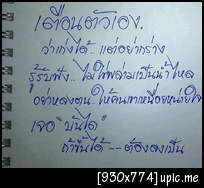 เตือนตัวเอง.
ว่าเก่งได้..แต่อย่ากร่าง
รู้รับฟัง.. ไม่ใช่พล่ามเป็นน้ำไหล
อย่าหลงตน.. ให้คนเขาเหนื่อยหน่ายใจ
เจอ "บันได"
ถ้าขึ้นได้ -- ต้องลงเป็น
[930x774] upic.me